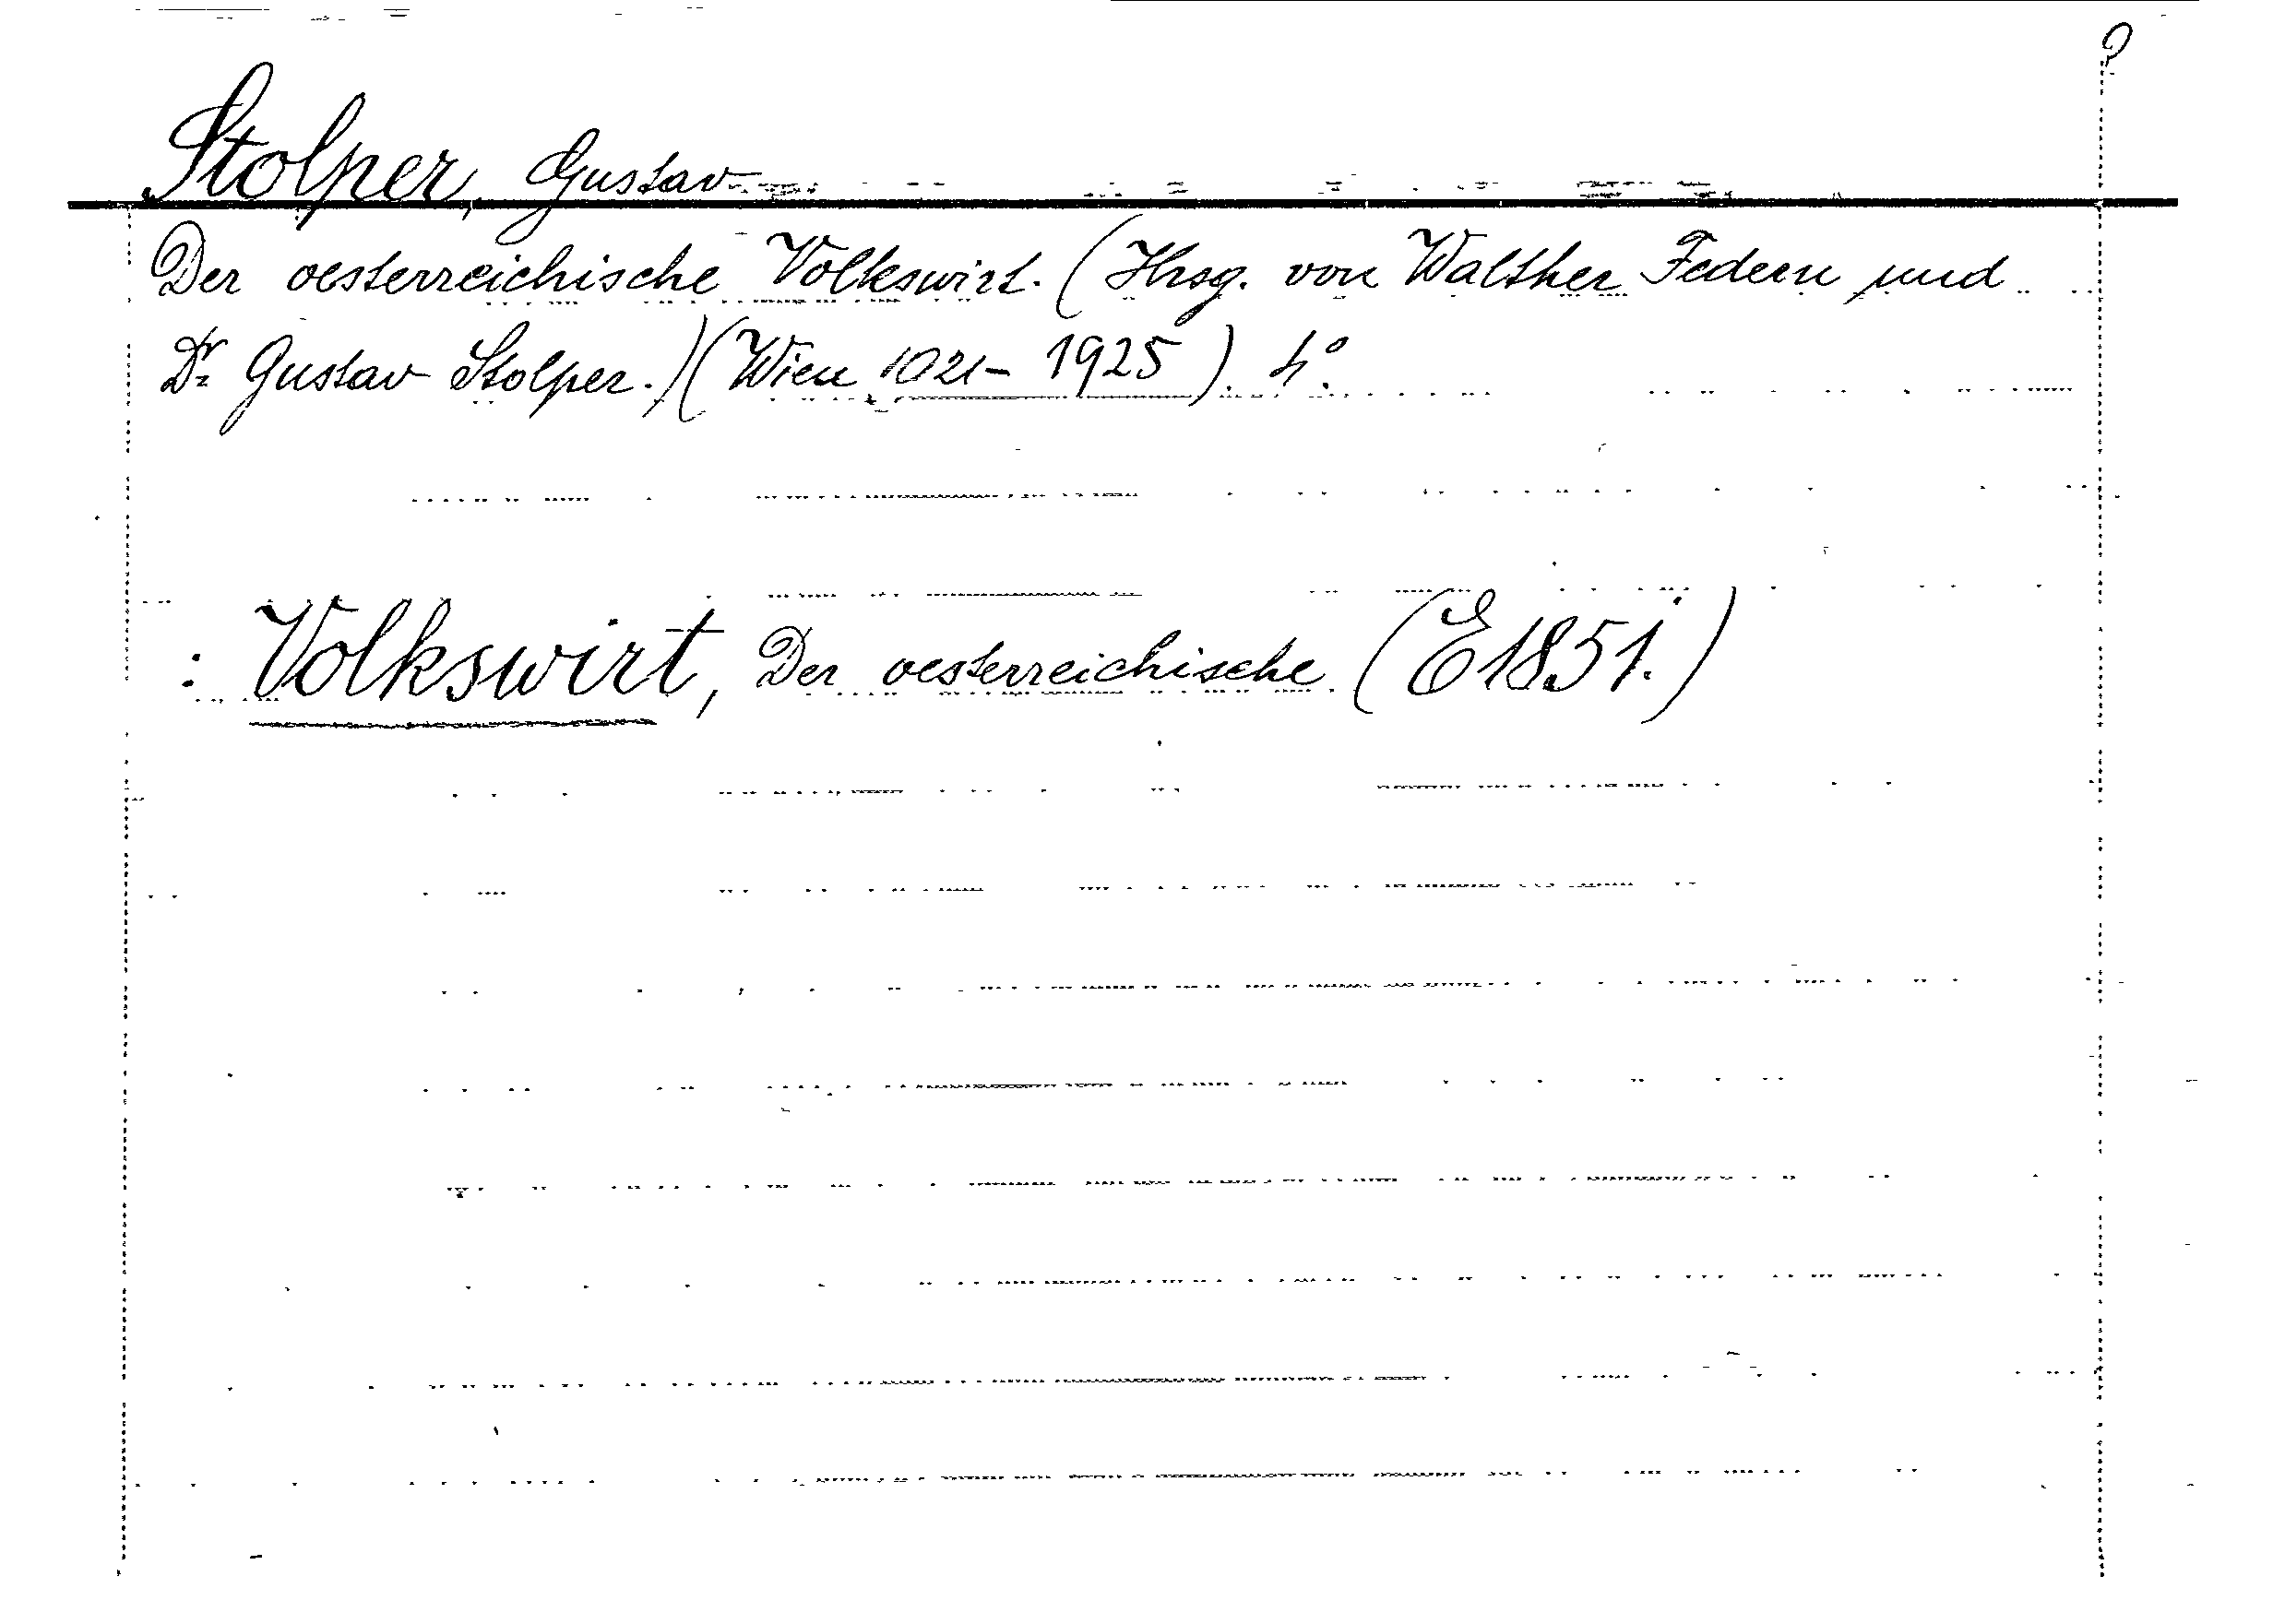 Stolper, Gustav
Der oesterreichische Volkswirt. (Hrsg. von Walther Federn und
Dr. Gustav Stolper.) (Wien 1921- 1925). 4°.
: Volkswirt, Der oesterreichische (E1851.)